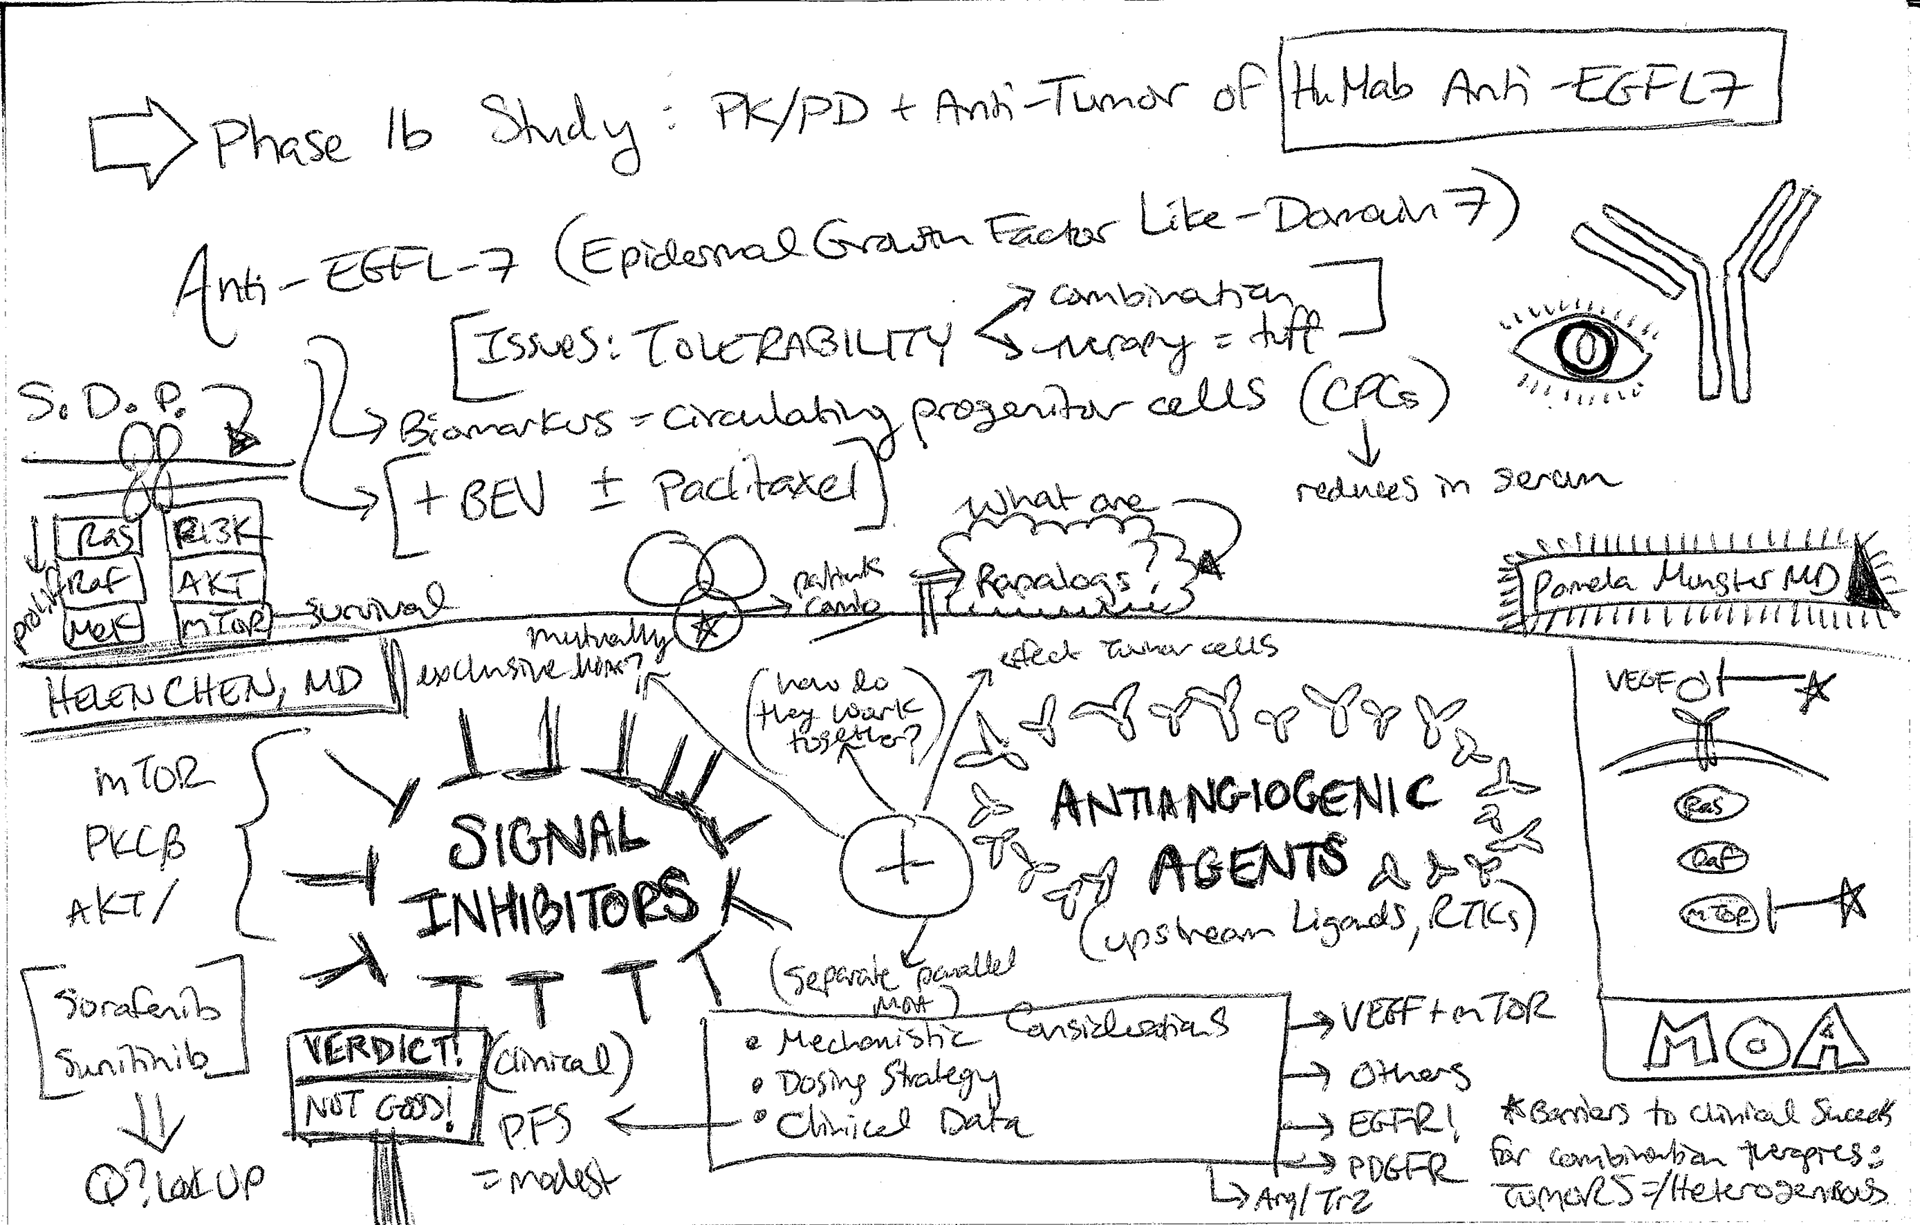 Phase 1b Study: PK/PD + Anti-Tumor of HuMab Anti-EGFL7
Anti-EGFL-7 (Epidermal Growth Factor Like-Domain 7)
[Issues: TOLERABILITY combination
therapy = tuff]
S.D.P.
Biomarkers = circulating progenitor cells (CPCs)
reduces in serum
[+ BEV ± Paclitaxel]
Ras PI3K
Raf AKT
Mek mTOR survival
prolif
patients
combo
What are
Rapalogs?
Pamela Munster MD
HELEN CHEN, MD
mutually
exclusive
(how do
they work
together?)
effect tumor cells
mTOR
PKCβ
AKT/
SIGNAL
INHIBITORS
+
ANTIANGIOGENIC
AGENTS
(upstream Ligands, RTKs)
(Separate parallel
MOA)
VEGF
Ras
Raf
mTOR
MOA
[Sorafenib
Sunitinib]
Q? LOOK UP
VERDICT!
NOT GOOD!
(Clinical)
PFS
= modest
• Mechanistic Considerations
• Dosing Strategy
• Clinical Data
VEGF + mTOR
Others
EGFR!
PDGFR
Ang/Tr2
* Barriers to Clinical Success
for combination therapies:
TUMORS =/Heterogenous